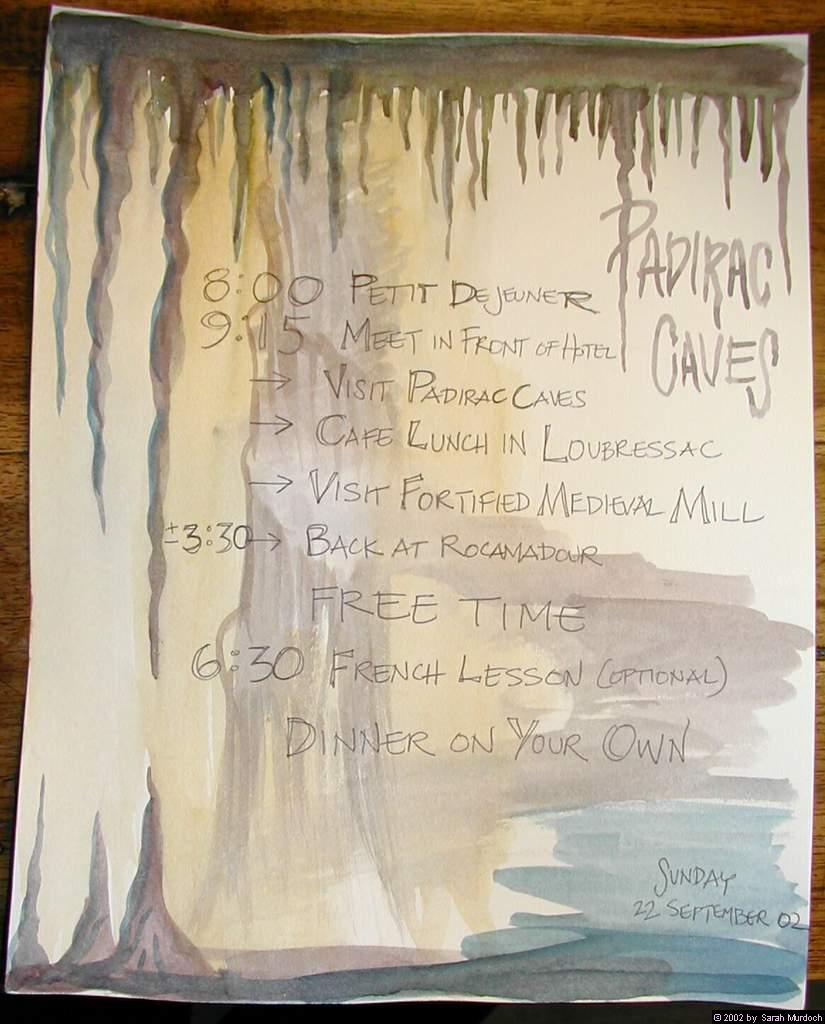 PADIRAC
CAVES
8:00 PETIT DEJEUNER
9:15 MEET IN FRONT OF HOTEL
→ VISIT PADIRAC CAVES
→ CAFE LUNCH IN LOUBRESSAC
→ VISIT FORTIFIED MEDIEVAL MILL
±3:30→ BACK AT ROCAMADOUR
FREE TIME
6:30 FRENCH LESSON (OPTIONAL)
DINNER ON YOUR OWN
SUNDAY
22 SEPTEMBER 02
© 2002 by Sarah Murdoch